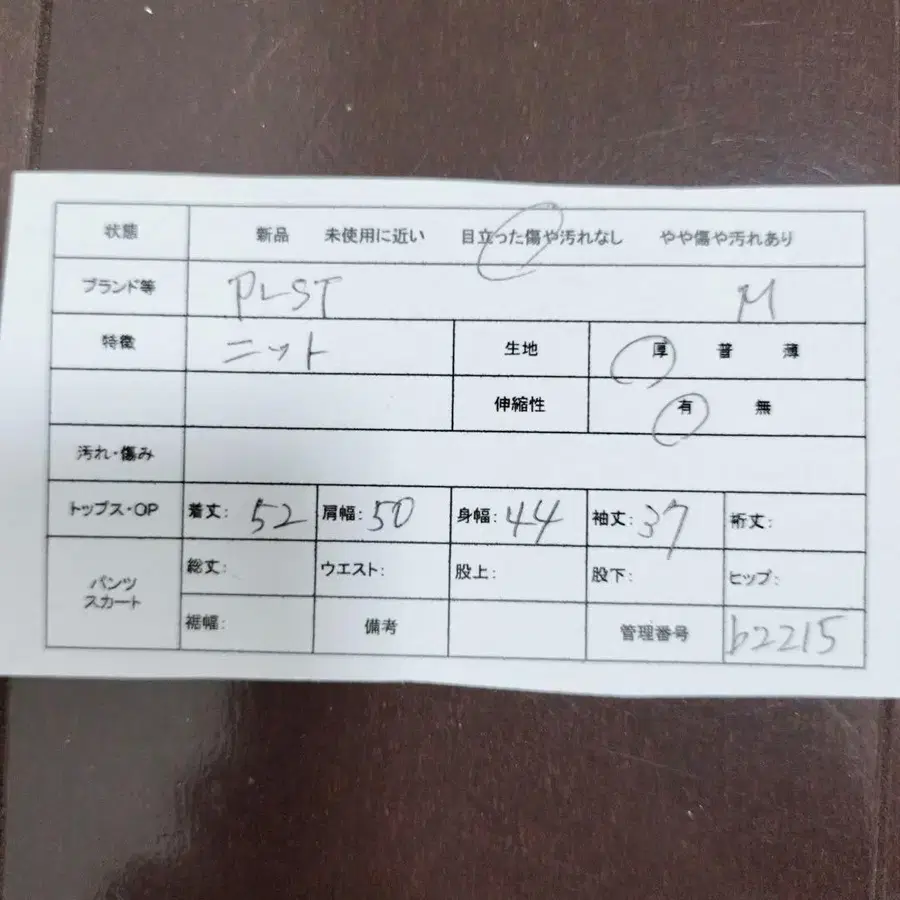 状態 新品 未使用に近い 目立った傷や汚れなし やや傷や汚れあり
ブランド等 PLST M
特徴 ニット 生地 厚 普 薄
伸縮性 有 無
汚れ・傷み
トップス・OP 着丈: 52 肩幅: 50 身幅: 44 袖丈: 37 裄丈:
パンツ スカート 総丈: ウエスト: 股上: 股下: ヒップ:
裾幅: 備考 管理番号 b2215